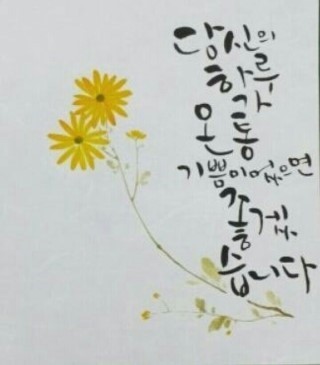 당신의
하루가
온통
기쁨이었으면
좋겠
습니다